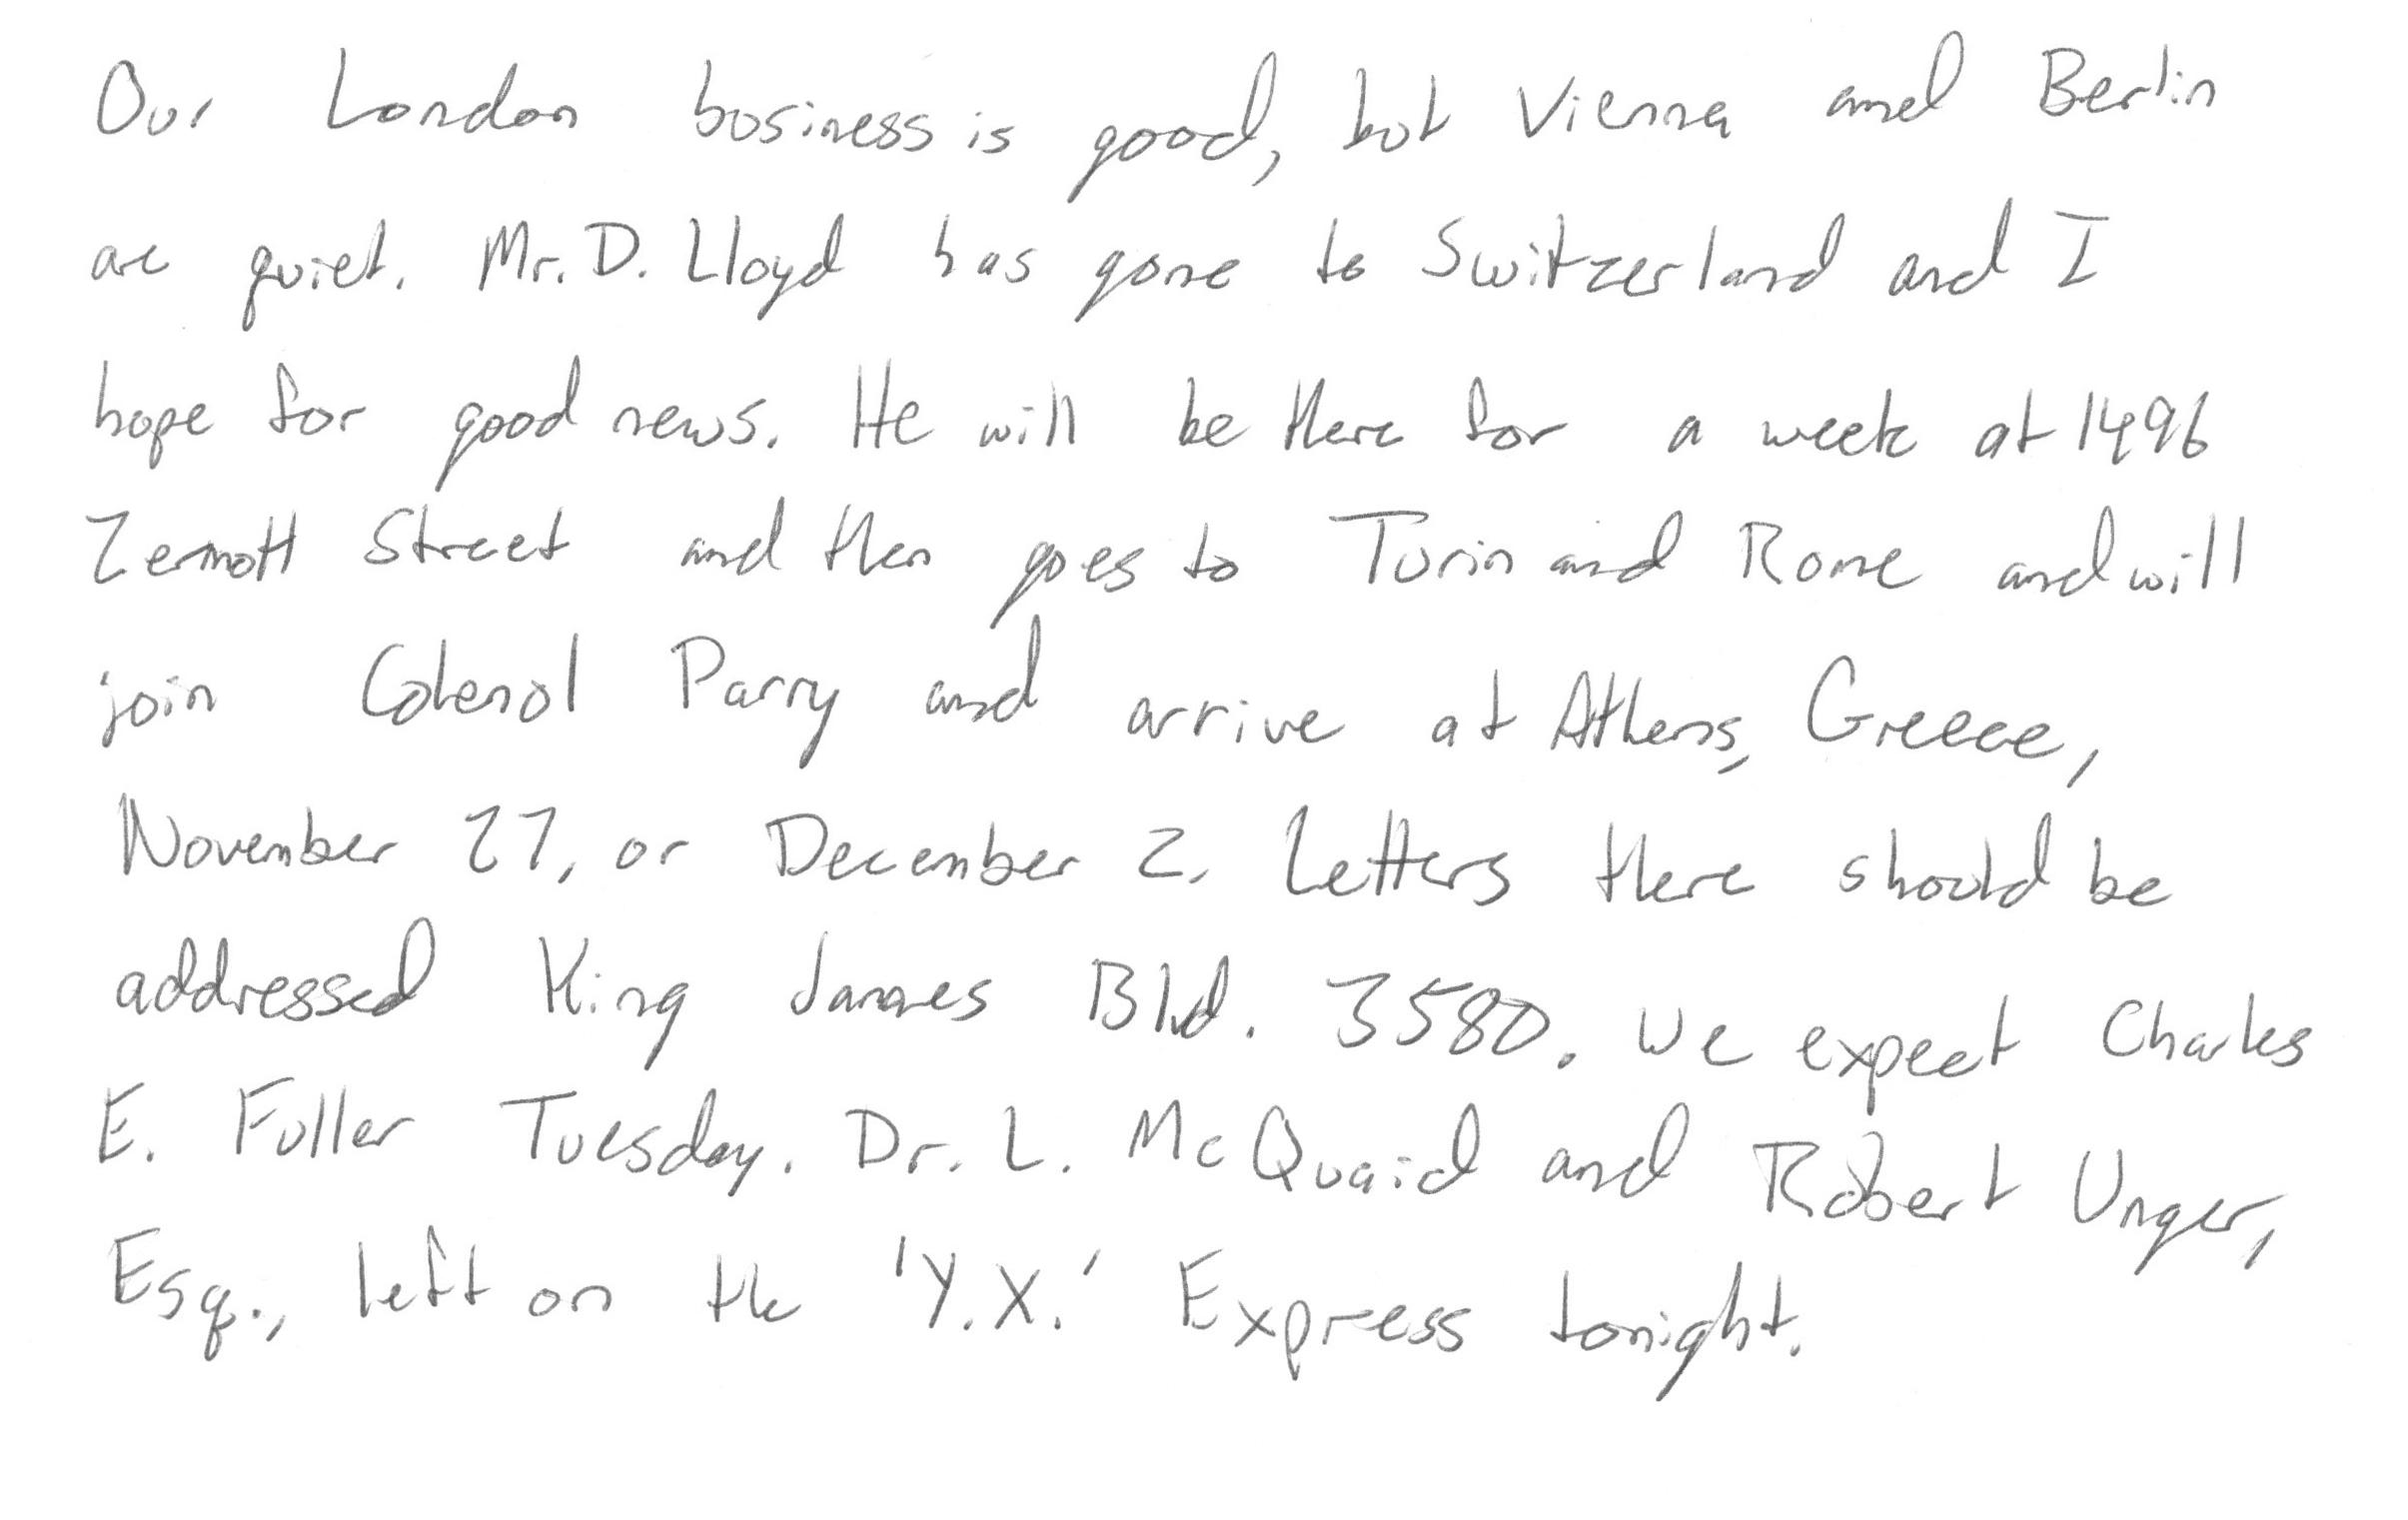 Our London business is good, but Vienna and Berlin
are quiet. Mr. D. Lloyd has gone to Switzerland and I
hope for good news. He will be there for a week at 1496
Zermott Street and then goes to Turin and Rome and will
join Colenol Parry and arrive at Athens, Greece,
November 27, or December 2. Letters there should be
addressed King James Blvd. 3580. We expect Charles
E. Fuller Tuesday. Dr. L. McQuaid and Robert Unger,
Esq., left on the 'Y.X.' Express tonight.